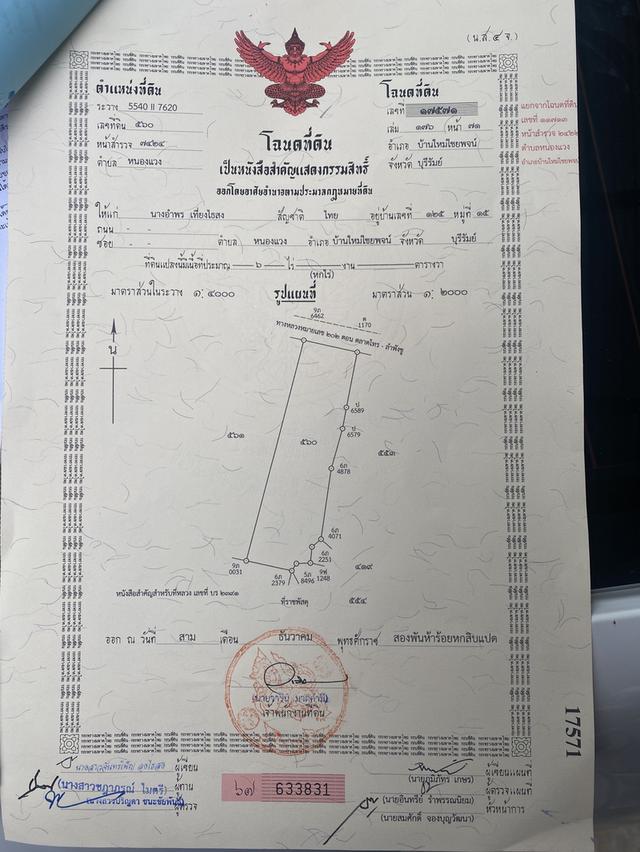 (น.ส.๔ จ.)
ตำแหน่งที่ดิน
ระวาง 5540 II 7620
เลขที่ดิน ๕๖๐
หน้าสำรวจ ๗๔๒๔
ตำบล หนองแวง
โฉนดที่ดิน
เลขที่ ๑๗๕๗๑
เล่ม ๑๗๖ หน้า ๗๑
อำเภอ บ้านใหม่ไชยพจน์
จังหวัด บุรีรัมย์
แยกจากโฉนดที่ดิน
เลขที่ ๑๑๗๑๓
หน้าสำรวจ
ตำบลหนองแวง
อำเภอบ้านใหม่ไชยพจน์
โฉนดที่ดิน
เป็นหนังสือสำคัญแสดงกรรมสิทธิ์
ออกโดยอาศัยอำนาจตามประมวลกฎหมายที่ดิน
ให้แก่ นางอำพร เที่ยงไธสง สัญชาติ ไทย อยู่บ้านเลขที่ ๑๒๕ หมู่ที่ ๑๕
ถนน - -
ซอย - - ตำบล หนองแวง อำเภอ บ้านใหม่ไชยพจน์ จังหวัด บุรีรัมย์
ที่ดินแปลงนี้มีเนื้อที่ประมาณ ๖ ไร่ งาน ตารางวา
(หกไร่)
มาตราส่วนในระวาง ๑: ๔๐๐๐ รูปแผนที่ มาตราส่วน ๑: ๒๐๐๐
6462
1170
ทางหลวงหมายเลข ๒๐๒ ตอน ตลาดไทร - ลำพังชู
น
6589
๕๖๑
๕๖๐
6579
๕๕๓
4878
4071
2251
0031
2379
8496
1248
๔๑๙
หนังสือสำคัญสำหรับที่หลวง เลขที่ บร ๒๓๙๑
ที่ราชพัสดุ
๕๕๔
ออก ณ วันที่ สาม เดือน ธันวาคม พุทธศักราช สองพันห้าร้อยหกสิบแปด
เจ้าพนักงานที่ดิน
17571
ผู้เขียน
(นางสาวชฎาภรณ์ ไมตรี) ผู้ทาน
ผู้ตรวจ
๖๗ 633831
(นายภูมิภัทร เกษร) ผู้เขียนแผนที่
ผู้ตรวจแผนที่
(นายอินทรีย์ รำพรรณนิยม) หัวหน้าการ
(นายสมศักดิ์ จองบุญวัฒนา)